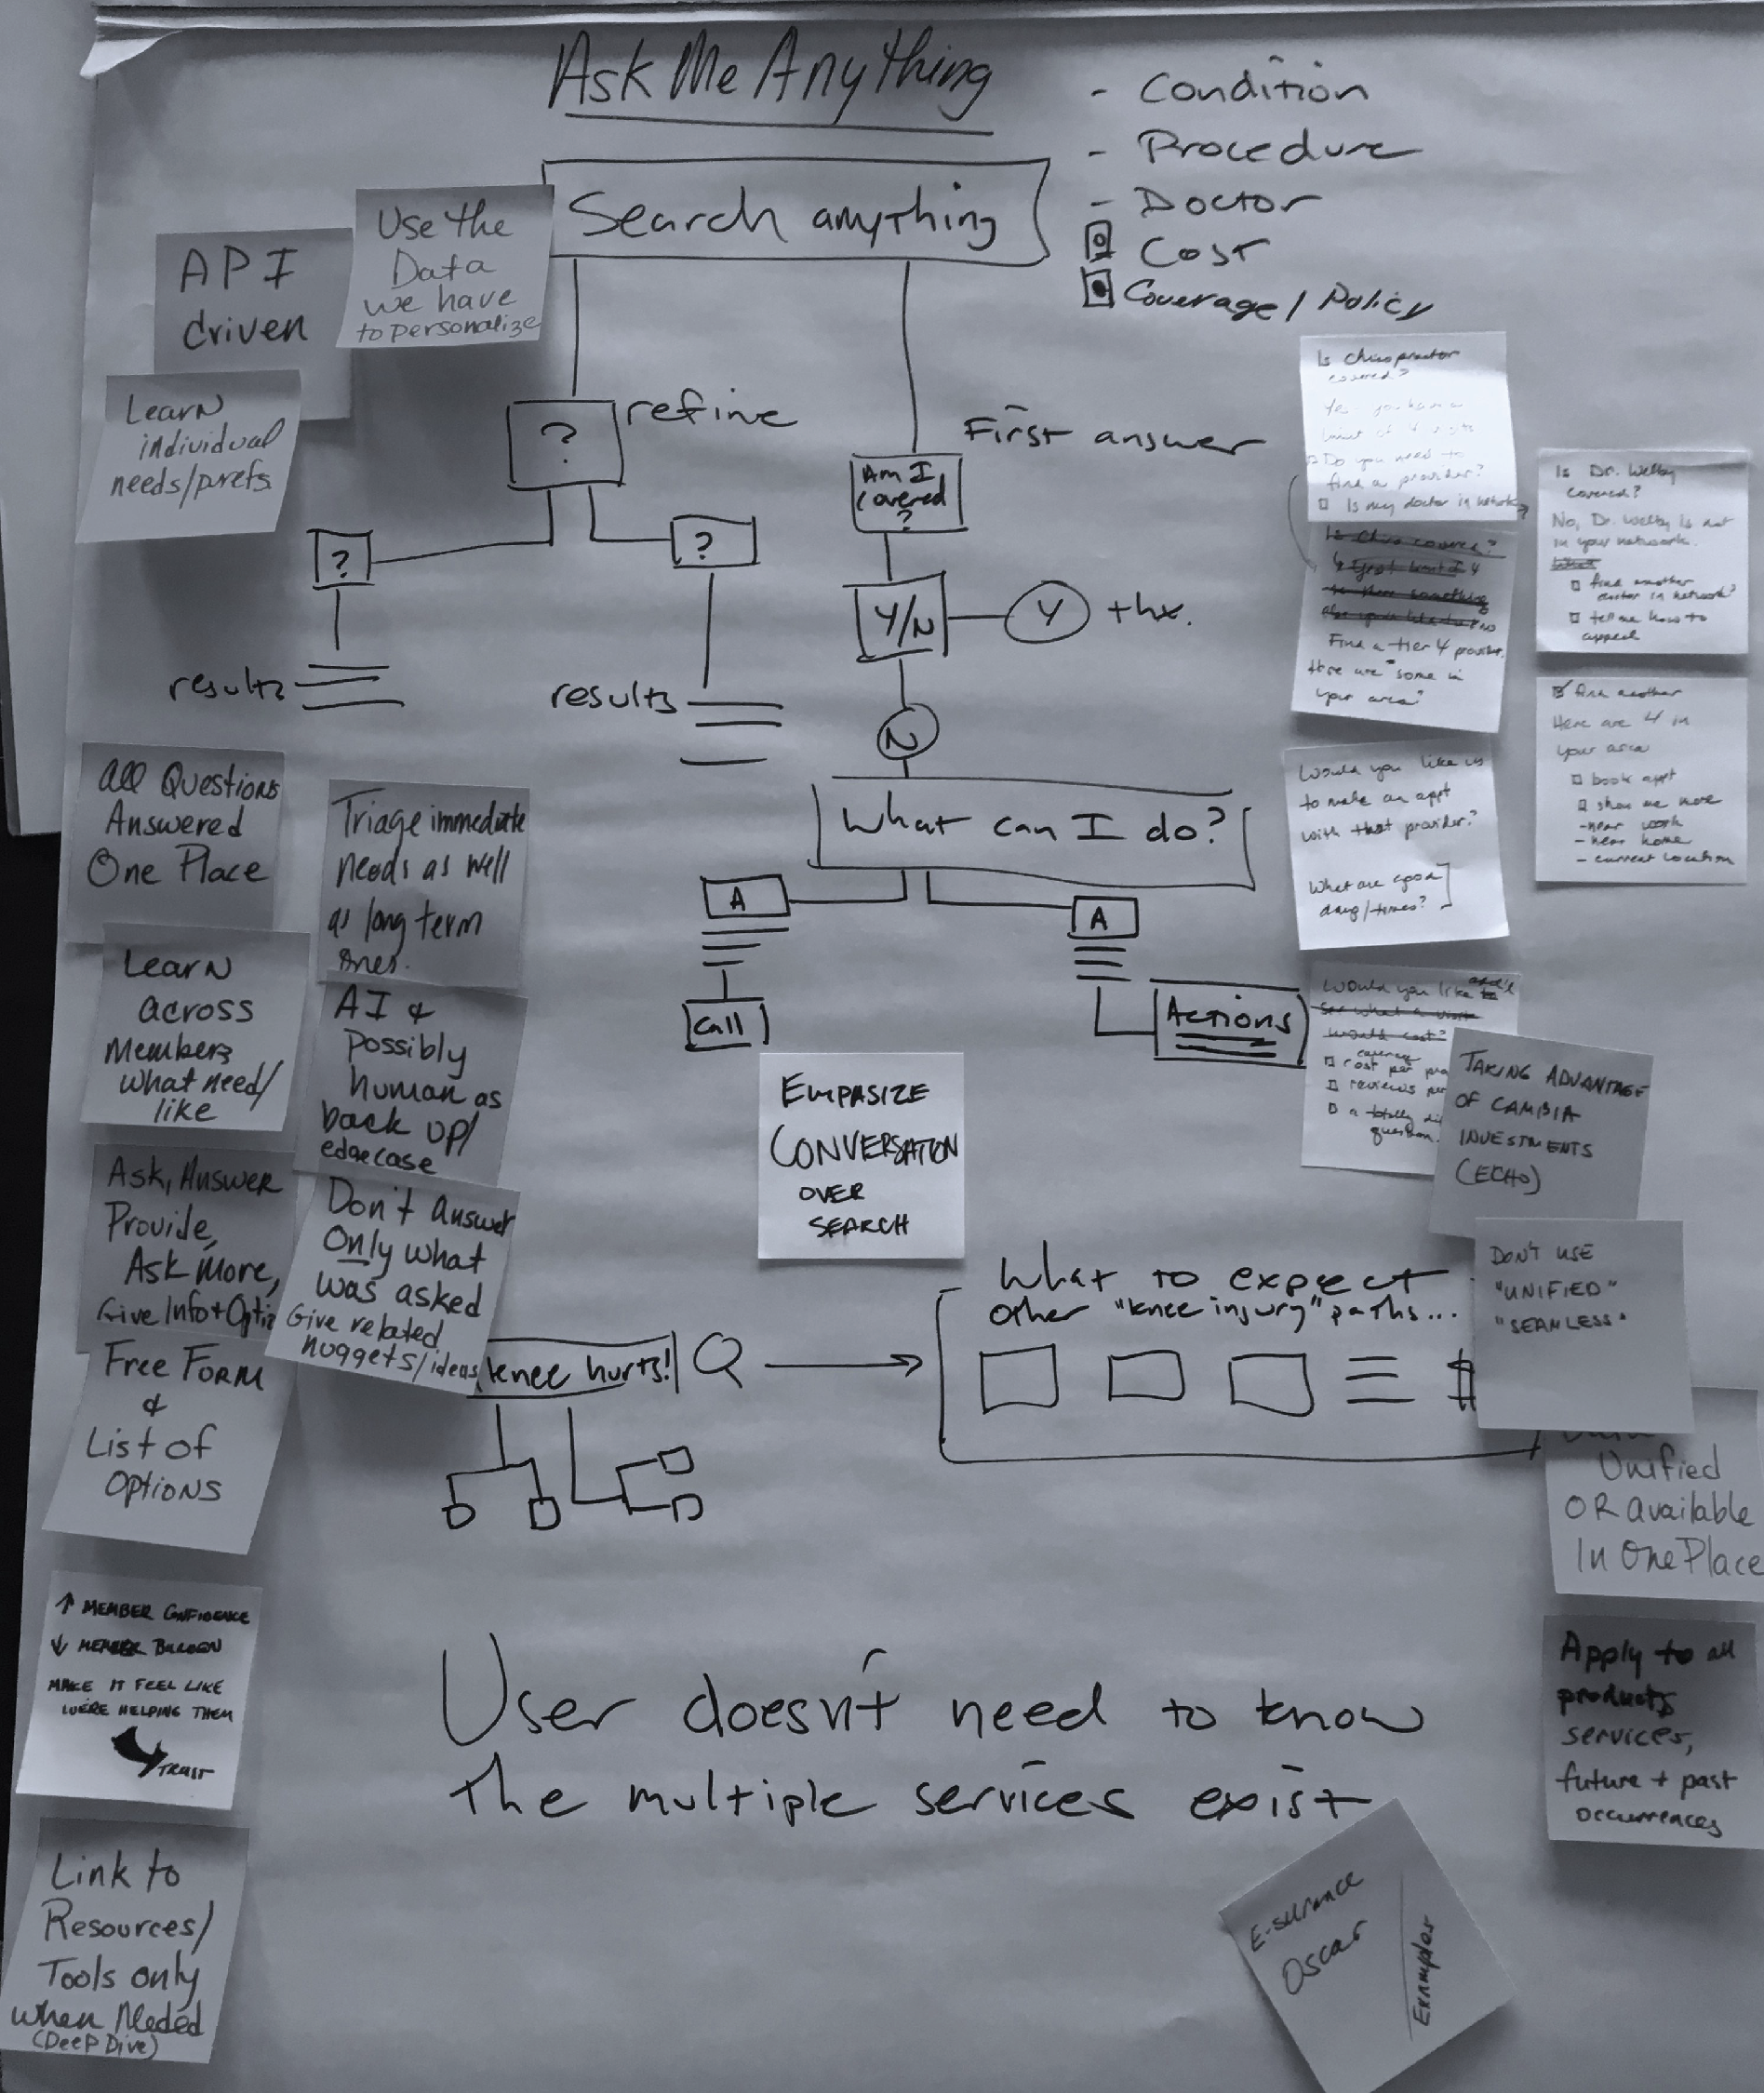 Ask Me Anything
- Condition
- Procedure
- Doctor
Cost
Coverage / Policy
Search anything
Use the
Data
we have
to personalize
API
driven
Learn
individual
needs/prefs
?
refine
?
?
results
results
First answer
Am I
covered
?
Y/N
Y
thx.
N
What can I do?
A
A
Call
Actions
Is Chiropractor
covered?
Yes you have a
limit of 4 visits
Do you need to
find a provider?
Is my doctor in network
Is Chiro covered?
Find a tier 4 provider.
Here are some in
your area?
Is Dr. Welby
covered?
No, Dr. Welby is not
in your network.
What
find another
doctor in network?
tell me how to
appeal
find another
Here are 4 in
your area
book appt
show me more
- near work
- near home
- current location
Would you like us
to make an appt
with that provider?
What are good
days/times?
Would you like to
see what a visit
would cost?
cost per
reviews
a totally
question.
TAKING ADVANTAGE
OF CAMBIA
INVESTMENTS
(ECHO)
DON'T USE
"UNIFIED"
"SEAMLESS"
Unified
OR available
In One Place
Apply to all
products
services,
future + past
occurrences
All Questions
Answered
One Place
Triage immediate
needs as well
as long term
ones.
Learn
across
Members
what need/
like
AI &
possibly
human as
back up/
edgecase
Ask, Answer
Provide,
Ask More,
Give Info + Optio
Don't answer
Only what
was asked
Give related
nuggets/ideas
EMPASIZE
CONVERSATION
OVER
SEARCH
Free Form
&
List of
Options
knee hurts!
What to expect
other "knee injury" paths...
$
↑ MEMBER CONFIDENCE
↓ MEMBER BURDEN
MAKE IT FEEL LIKE
WE'RE HELPING THEM
TRUST
User doesn't need to know
the multiple services exist
Link to
Resources/
Tools only
when Needed
(Deep Dive)
E-surance
Oscar
Examples